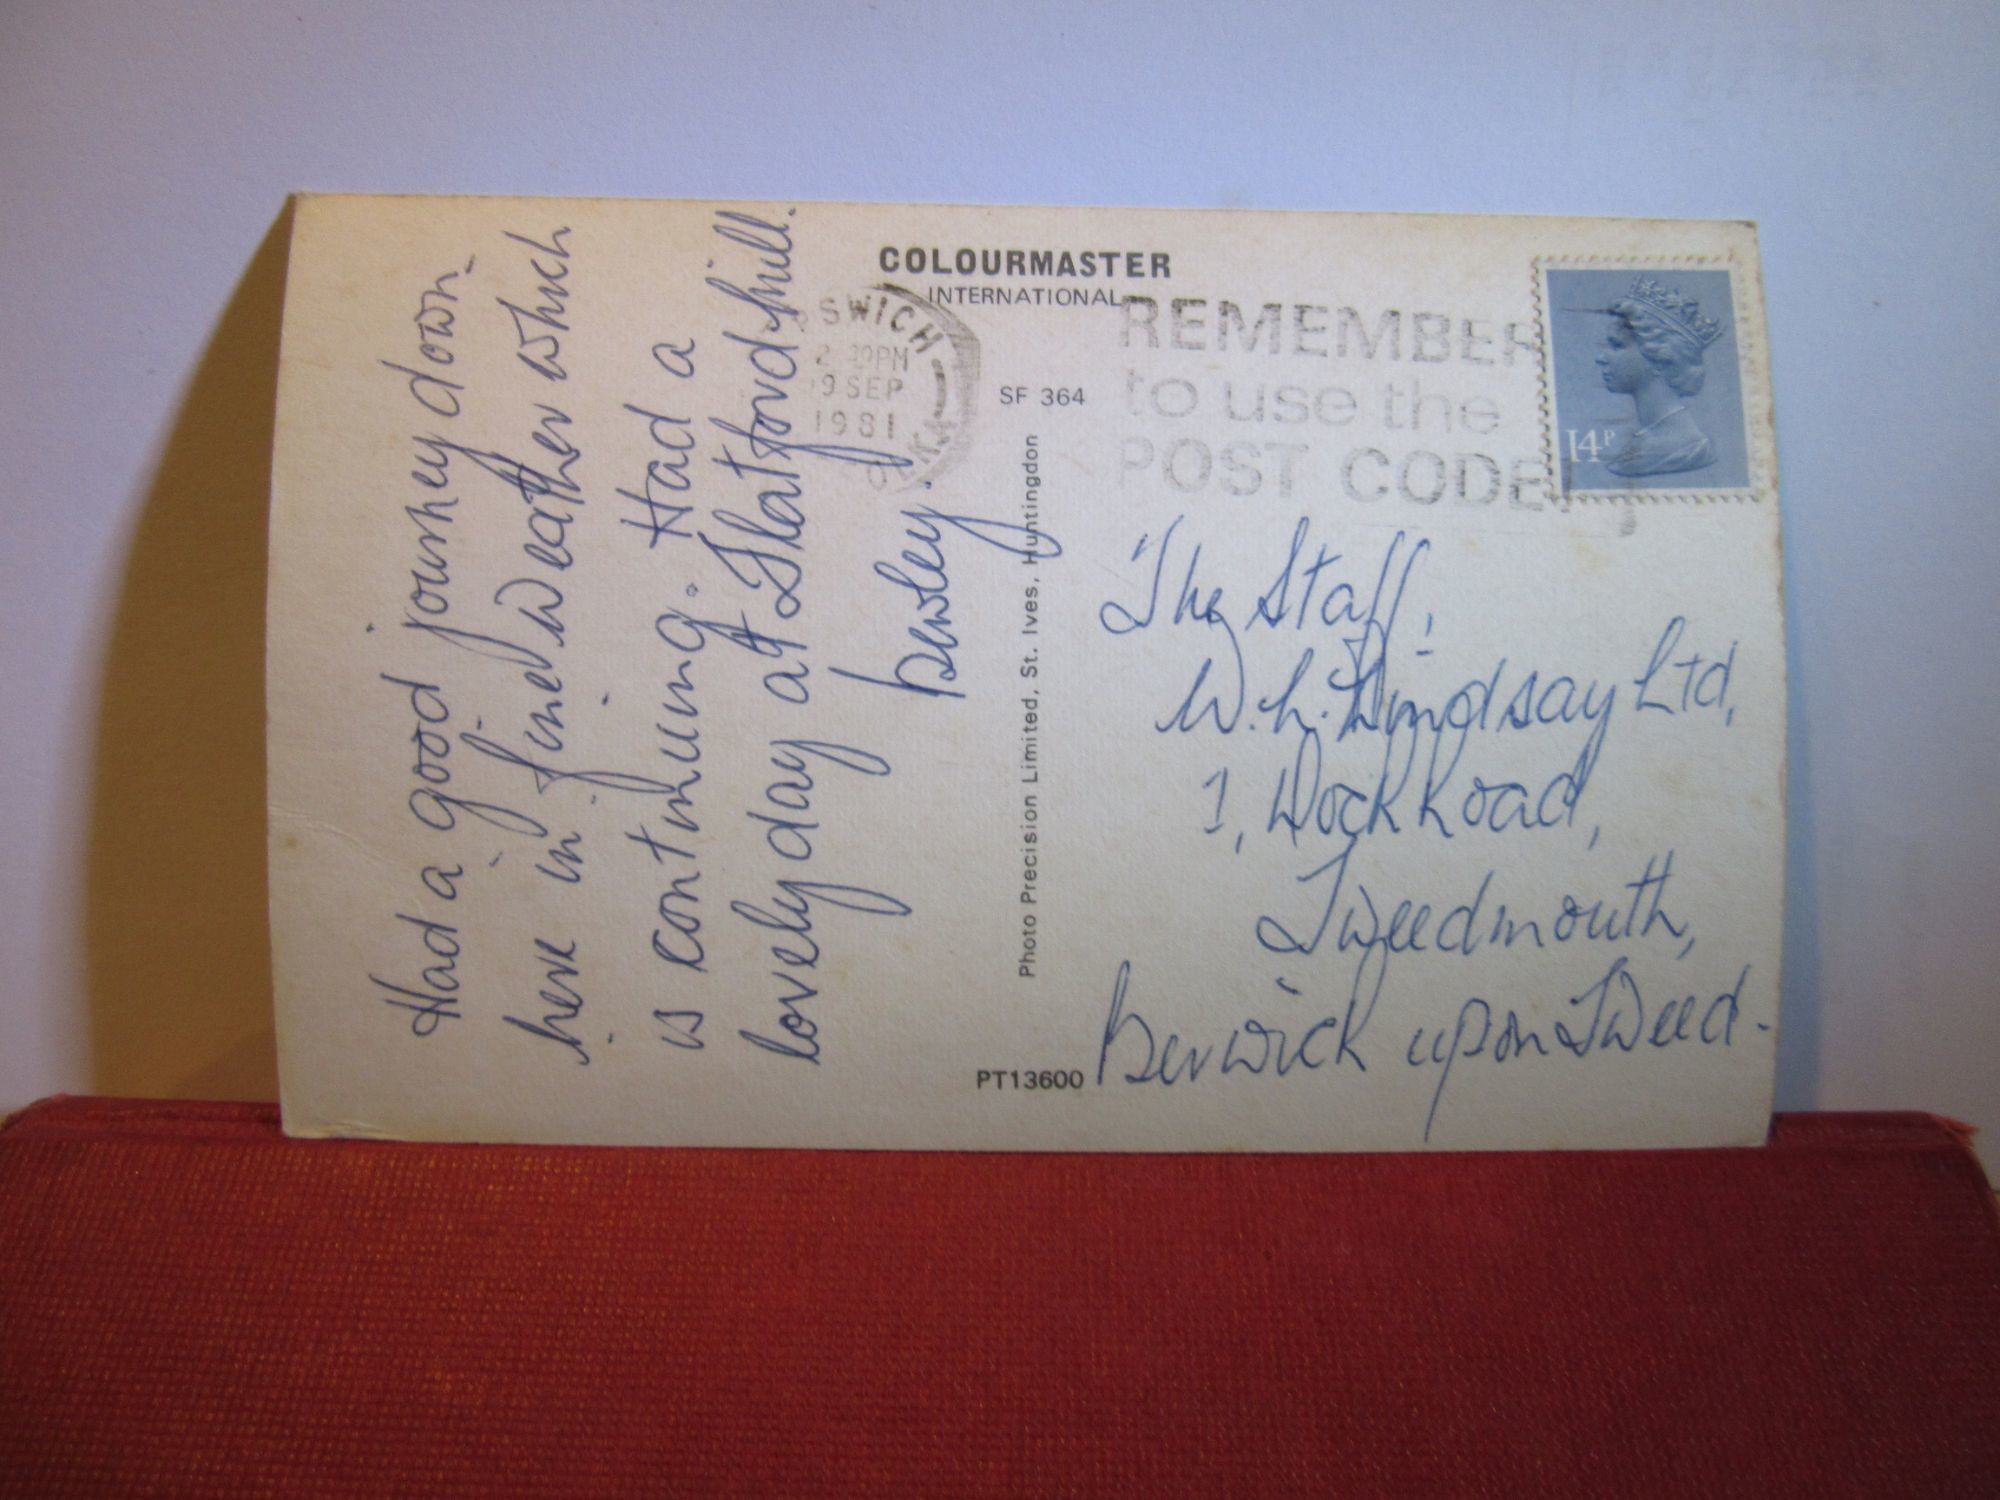 Had a good journey down
here in fine weather which
is continuing. Had a
lovely day at Flatford Mill.
COLOURMASTER
INTERNATIONAL
SWICH
2 30PM
9 SEP
1981
REMEMBER
to use the
POST CODE
14P
SF 364
Photo Precision Limited, St. Ives, Huntingdon
PT13600
The Staff,
W. L. Lindsay Ltd,
1, Dock Road,
Tweedmouth,
Berwick upon Tweed.